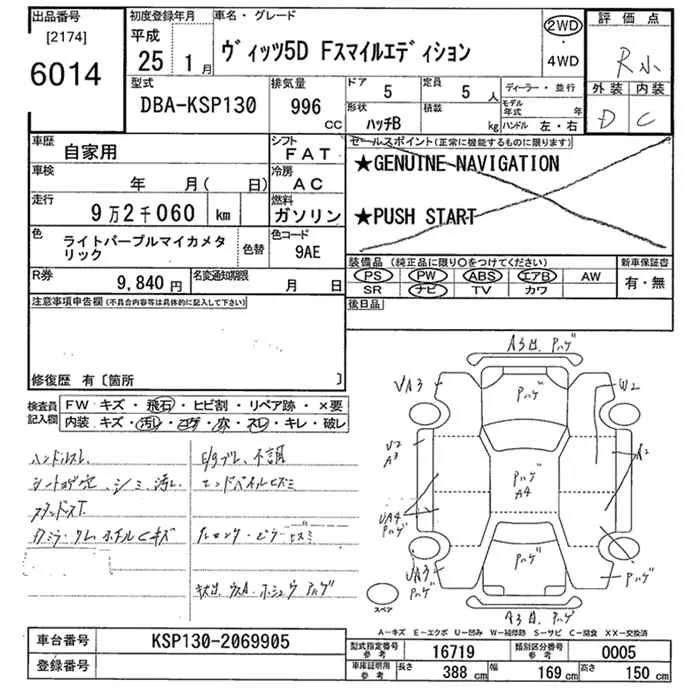 出品番号
[2174]
6014
初度登録年月
平成
25 1月
車名・グレード
ヴィッツ5D Fスマイルエディション
2WD
・
4WD
評価点
R 小
外装 内装
D C
型式
DBA-KSP130
排気量
996 CC
ドア
5
定員
5人
形状
ハッチB
積載
kg
ディーラー・並行
モデル年式 年
ハンドル 左・右
車歴
自家用
シフト
FAT
車検
年 月( 日)
冷房
AC
走行
9万2千060 km
燃料
ガソリン
色
ライトパープルマイカメタリック
色替
色コード
9AE
R券
9,840円
名変通知期限
月 日
セールスポイント(正常に機能するものに限ります)
★GENUINE NAVIGATION
★PUSH START
装備品 (純正品に限り○をつけてください)
新車保証書
PS PW ABS エアB AW
有・無
SR ナビ TV カワ
後日品
注意事項申告欄(不具合内容等は具体的に記入して下さい)
修復歴 有〔箇所 〕
検査員記入欄
FW キズ・飛石・ヒビ割・リペア跡・×要
内装 キズ・汚レ・コゲ・穴・スレ・キレ・破レ
ハンドルスレ
シートコゲ穴、シミ、汚レ
E/gブレ、不調
エンドパネルヒズミ
A3 凹 Pハゲ
VA3
Pハゲ
W2
V2
A3
A2
Pハゲ
A4
UA4
Pハゲ
Pハゲ
Pハゲ
スペア
A3 凹 Pハゲ
A-キズ E-エクボ U-凹み W-補修跡 S-サビ C-腐食 XX-交換済
車台番号
KSP130-2069905
登録番号
型式指定番号参考
16719
類別区分番号参考
0005
車庫証明用参考
長さ 388 cm
幅 169 cm
高さ 150 cm